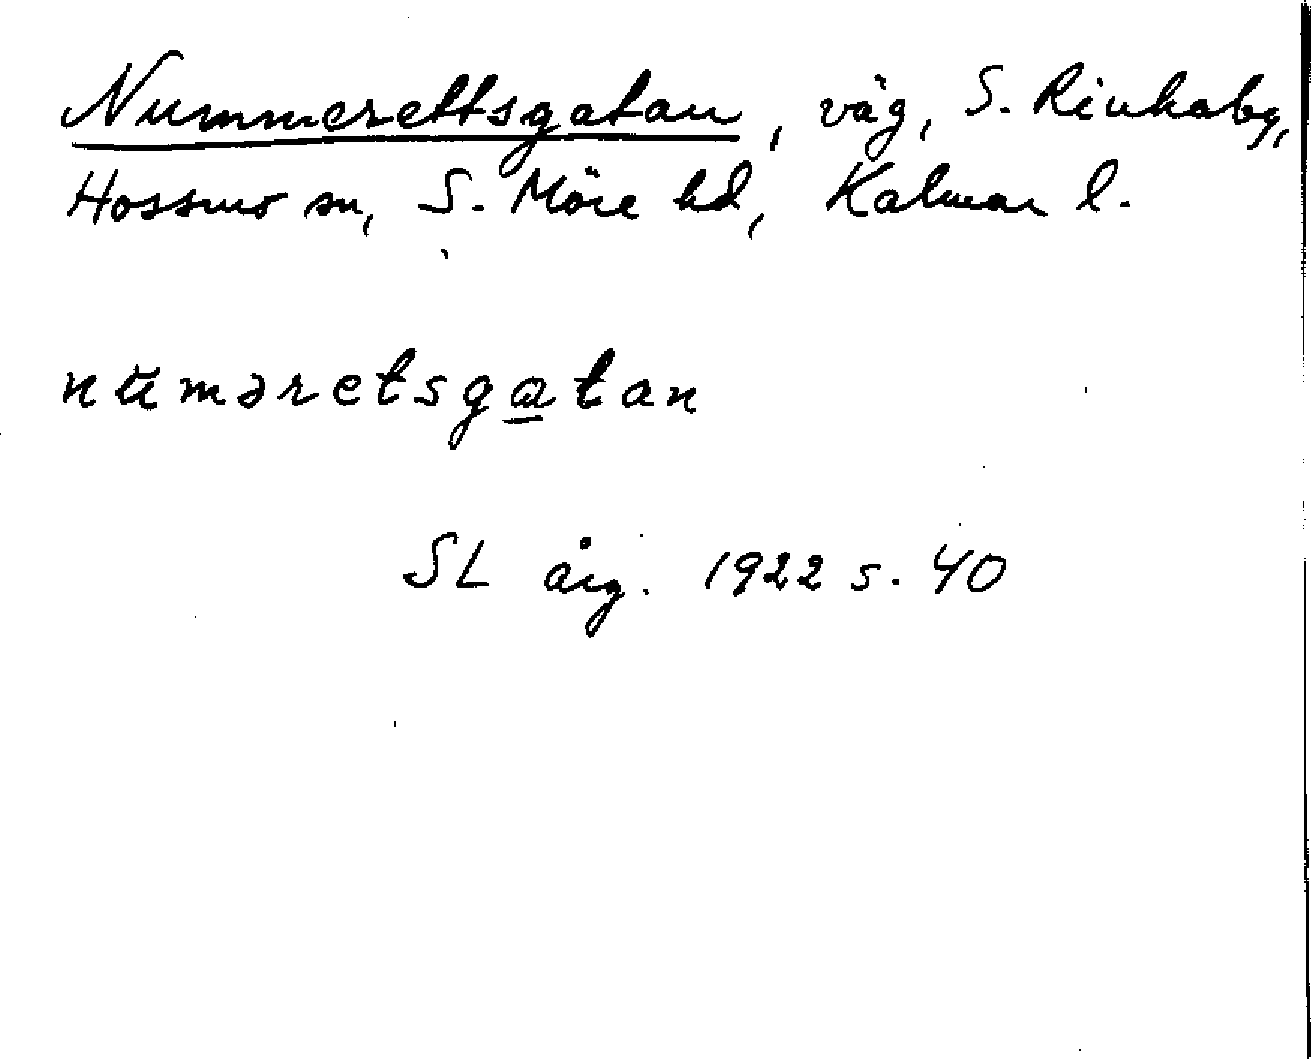 Nummerettsgatan, väg, S. Rinkaby,
Hossmo sn, S. Möre hd, Kalmar l.
nŭməretsgɑ̲tan
SL årg. 1922 s. 40